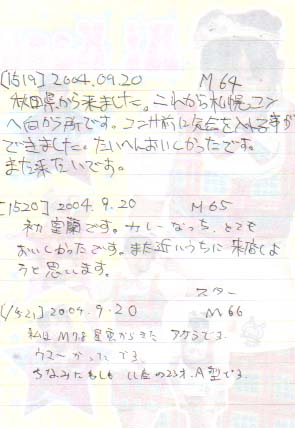 [1519] 2004.09.20 M64
秋田県から来ました。これから札幌コン
へ向かう所です。コンサ前に気合を入れる事が
できました。たいへんおいしかったです。
また来たいです。
[1520] 2004.9.20 M65
初室蘭です。カレーなっち、とても
おいしかったです。また近いうちに来店しよ
うと思います。
スター
[1521] 2004.9.20 M66
私は M78 星雲からきた アクラです。
ウマ〜かったです
ちなみに しし座の23才、A型です。